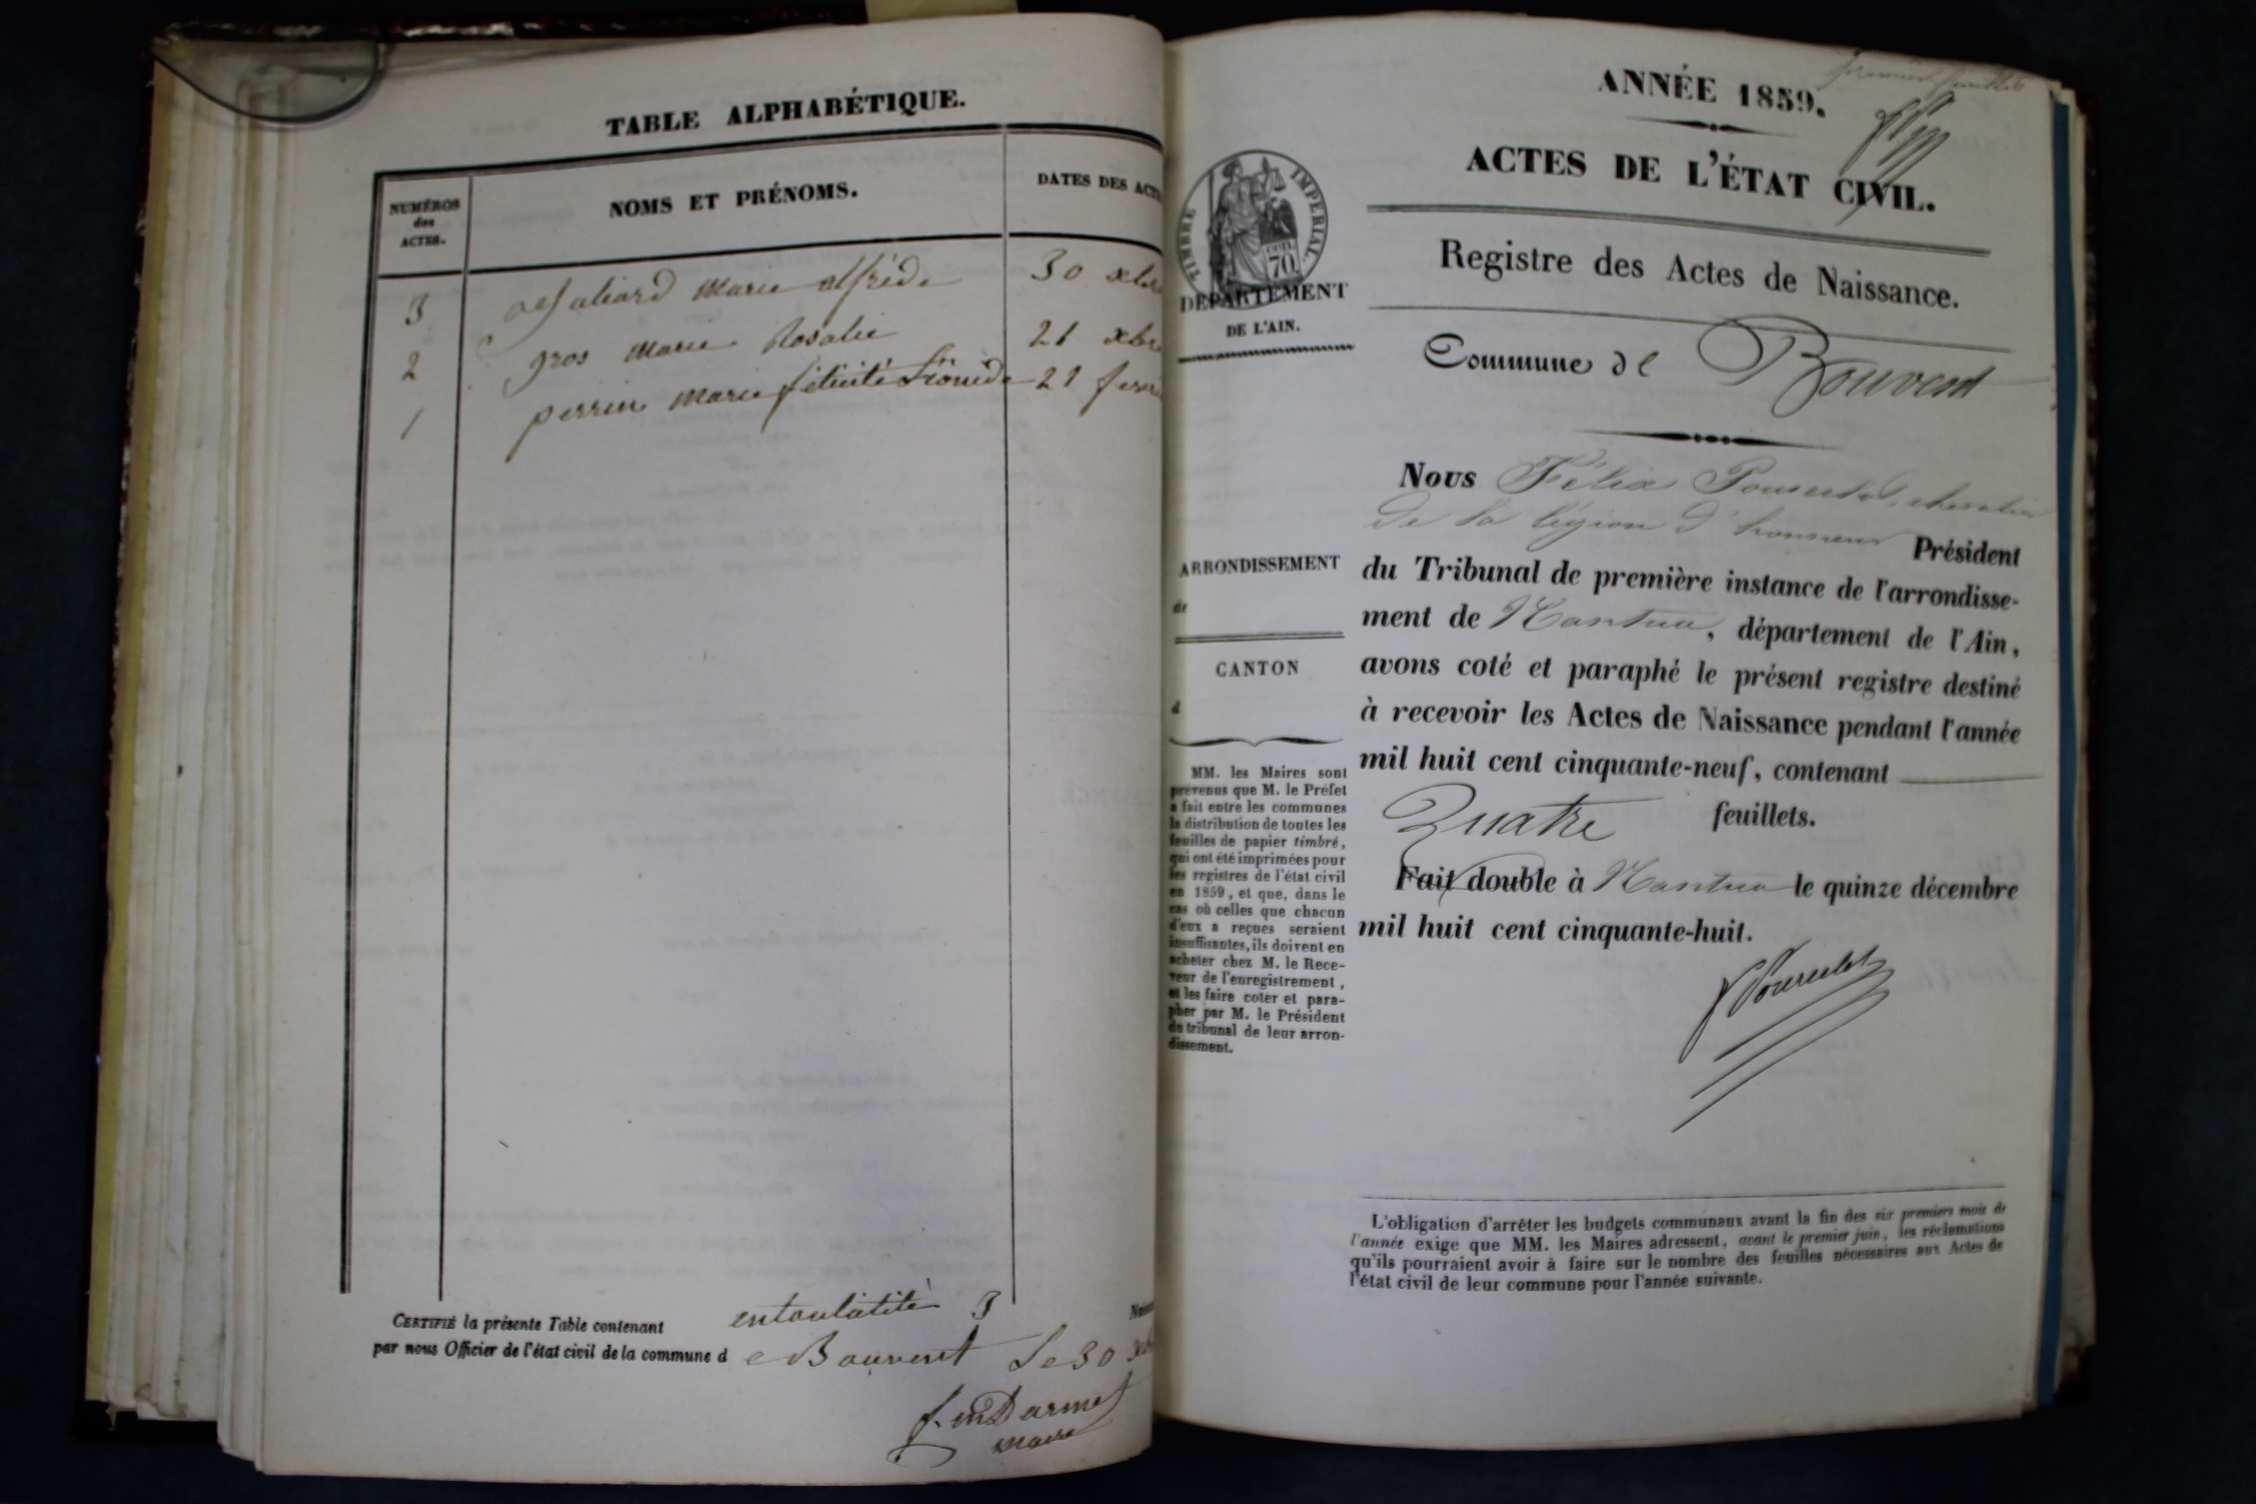 TABLE ALPHABÉTIQUE.
NUMÉROS
des
ACTES.
NOMS ET PRÉNOMS.
DATES DES ACTES
3 marie alfréde 30 xbre
2 gros marie Rosalie 21 xbre
1 perrin marie félicité 21
CERTIFIÉ la présente Table contenant 3
par nous Officier de l'état civil de la commune d e Bouvent Le 30 xbre
maire
ANNÉE 1859.
ACTES DE L'ÉTAT CIVIL.
TIMBRE IMPERIAL.
70
DÉPARTEMENT
DE L'AIN.
Registre des Actes de Naissance.
Commune de Bouvent
Nous Félix Pourcelot, chevalier
de la légion d'honneur Président
ARRONDISSEMENT
de
CANTON
d
du Tribunal de première instance de l'arrondisse-
ment de Nantua, département de l'Ain,
avons coté et paraphé le présent registre destiné
à recevoir les Actes de Naissance pendant l'année
mil huit cent cinquante-neuf, contenant
Quatre feuillets.
Fait double à Nantua le quinze décembre
mil huit cent cinquante-huit.
Pourcelot
MM. les Maires sont
prévenus que M. le Préfet
a fait entre les communes
la distribution de toutes les
feuilles de papier timbré,
qui ont été imprimées pour
les registres de l'état civil
en 1859, et que, dans le
cas où celles que chacun
d'eux a reçues seraient
insuffisantes, ils doivent en
acheter chez M. le Rece-
veur de l'enregistrement,
et les faire coter et para-
pher par M. le Président
du tribunal de leur arron-
dissement.
L'obligation d'arrêter les budgets communaux avant la fin des six premiers mois de
l'année exige que MM. les Maires adressent, avant le premier juin, les réclamations
qu'ils pourraient avoir à faire sur le nombre des feuilles nécessaires aux Actes de
l'état civil de leur commune pour l'année suivante.